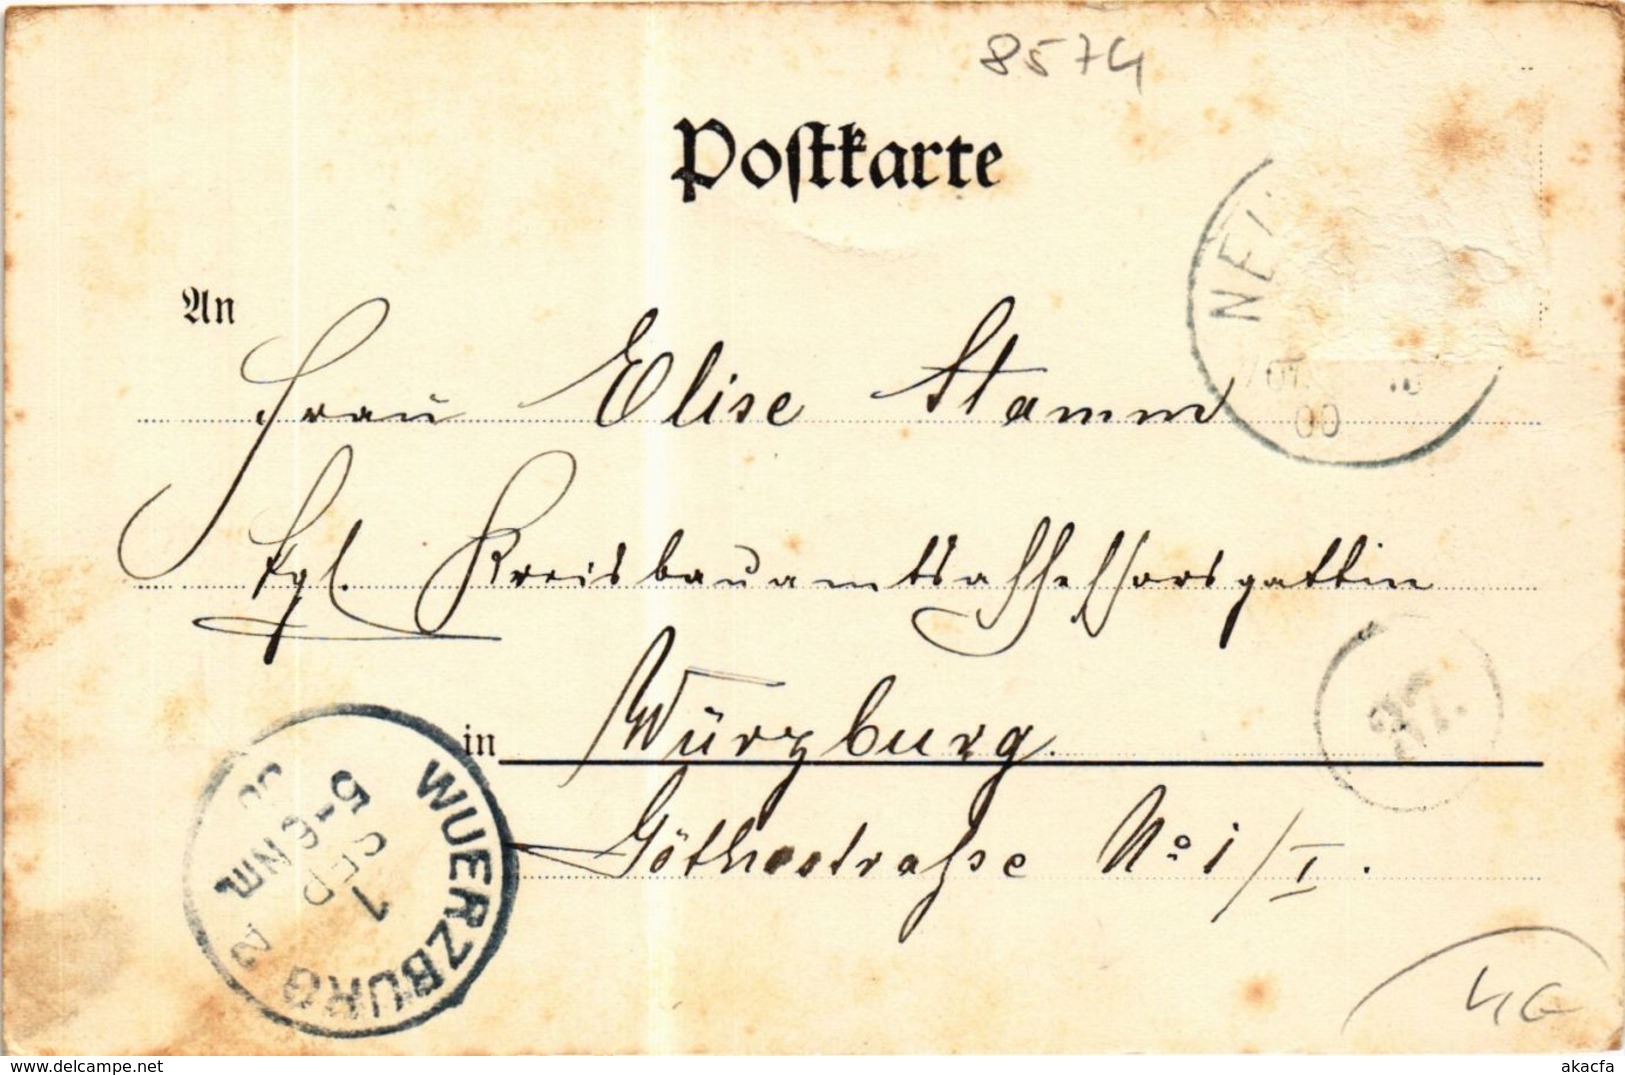 8574
Postkarte
NE
00
An
Frau Elise Stamm
Kgl. Kreisbauamtsassessorsgattin
in Würzburg.
Göthestraße No 1/I.
WUERZBURG 2
1 SEP
5-6 NM.
00
delcampe.net
akacfa